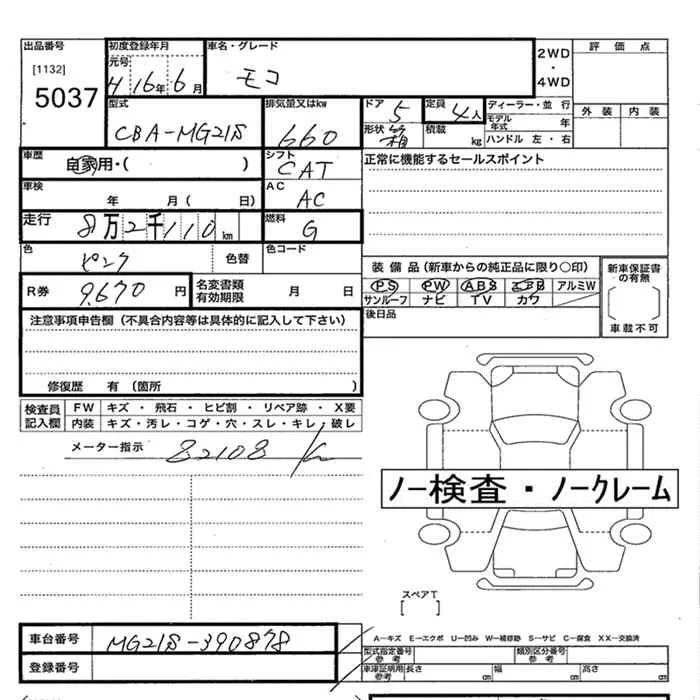 出品番号
[1132]
5037
初度登録年月
元号
H 16年 6月
車名・グレード
モコ
2WD
・
4WD
評価点
外装 内装
型式
CBA-MG21S
排気量又はkw
660
ドア 5
定員 4人
ディーラー・並行
モデル年式 年
形状 箱
積載 kg
ハンドル 左・右
車歴
自家用・( )
シフト
CAT
正常に機能するセールスポイント
車検
年 月( 日)
AC
AC
走行
8万2千110km
燃料
G
色
ピンク
色替
色コード
装備品(新車からの純正品に限り○印)
PS PW ABS エアB アルミW
サンルーフ ナビ TV カワ
新車保証書の有無
車載不可
R券 9,670円
名変書類有効期限 月 日
後日品
注意事項申告欄(不具合内容等は具体的に記入して下さい)
修復歴 有(箇所 )
検査員記入欄
FW キズ・飛石・ヒビ割・リペア跡・X要
内装 キズ・汚レ・コゲ・穴・スレ・キレ・破レ
メーター指示 82108
ノー検査・ノークレーム
スペアT
[ ]
車台番号 MG21S-390878
A―キズ E―エクボ U―凹み W―補修跡 S―サビ C―腐食 XX―交換済
登録番号
型式指定番号参考
類別区分番号参考
車庫証明用参考 長さ cm 幅 cm 高さ cm